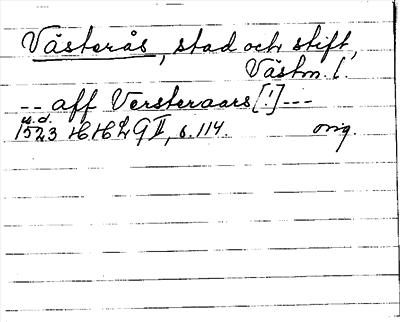 Västerås, stad och stift,
Västm. l.
-- aff Versteraars [!] ---
u.d.
1523 HH LG II, s. 114. orig.